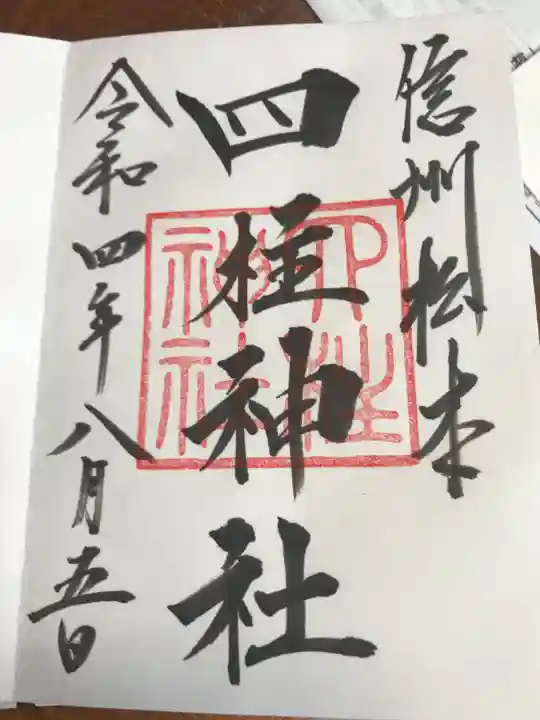 信州松本
四柱神社
四柱神社
令和四年八月五日